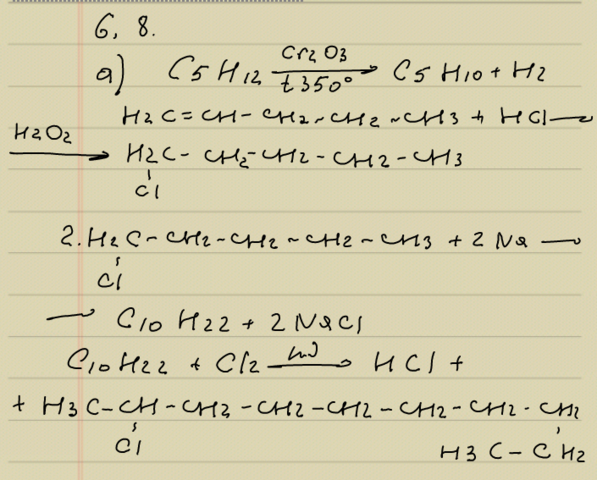 6, 8.
a) C5H12 Cr2O3 t 350° → C5H10 + H2
H2C=CH-CH2-CH2-CH3 + HCl →
H2O2 → H2C-CH2-CH2-CH2-CH3
Cl
2. H2C-CH2-CH2-CH2-CH3 + 2Na →
Cl
→ C10H22 + 2NaCl
C10H22 + Cl2 hν → HCl +
+ H3C-CH-CH2-CH2-CH2-CH2-CH2-CH2
Cl H3C-CH2